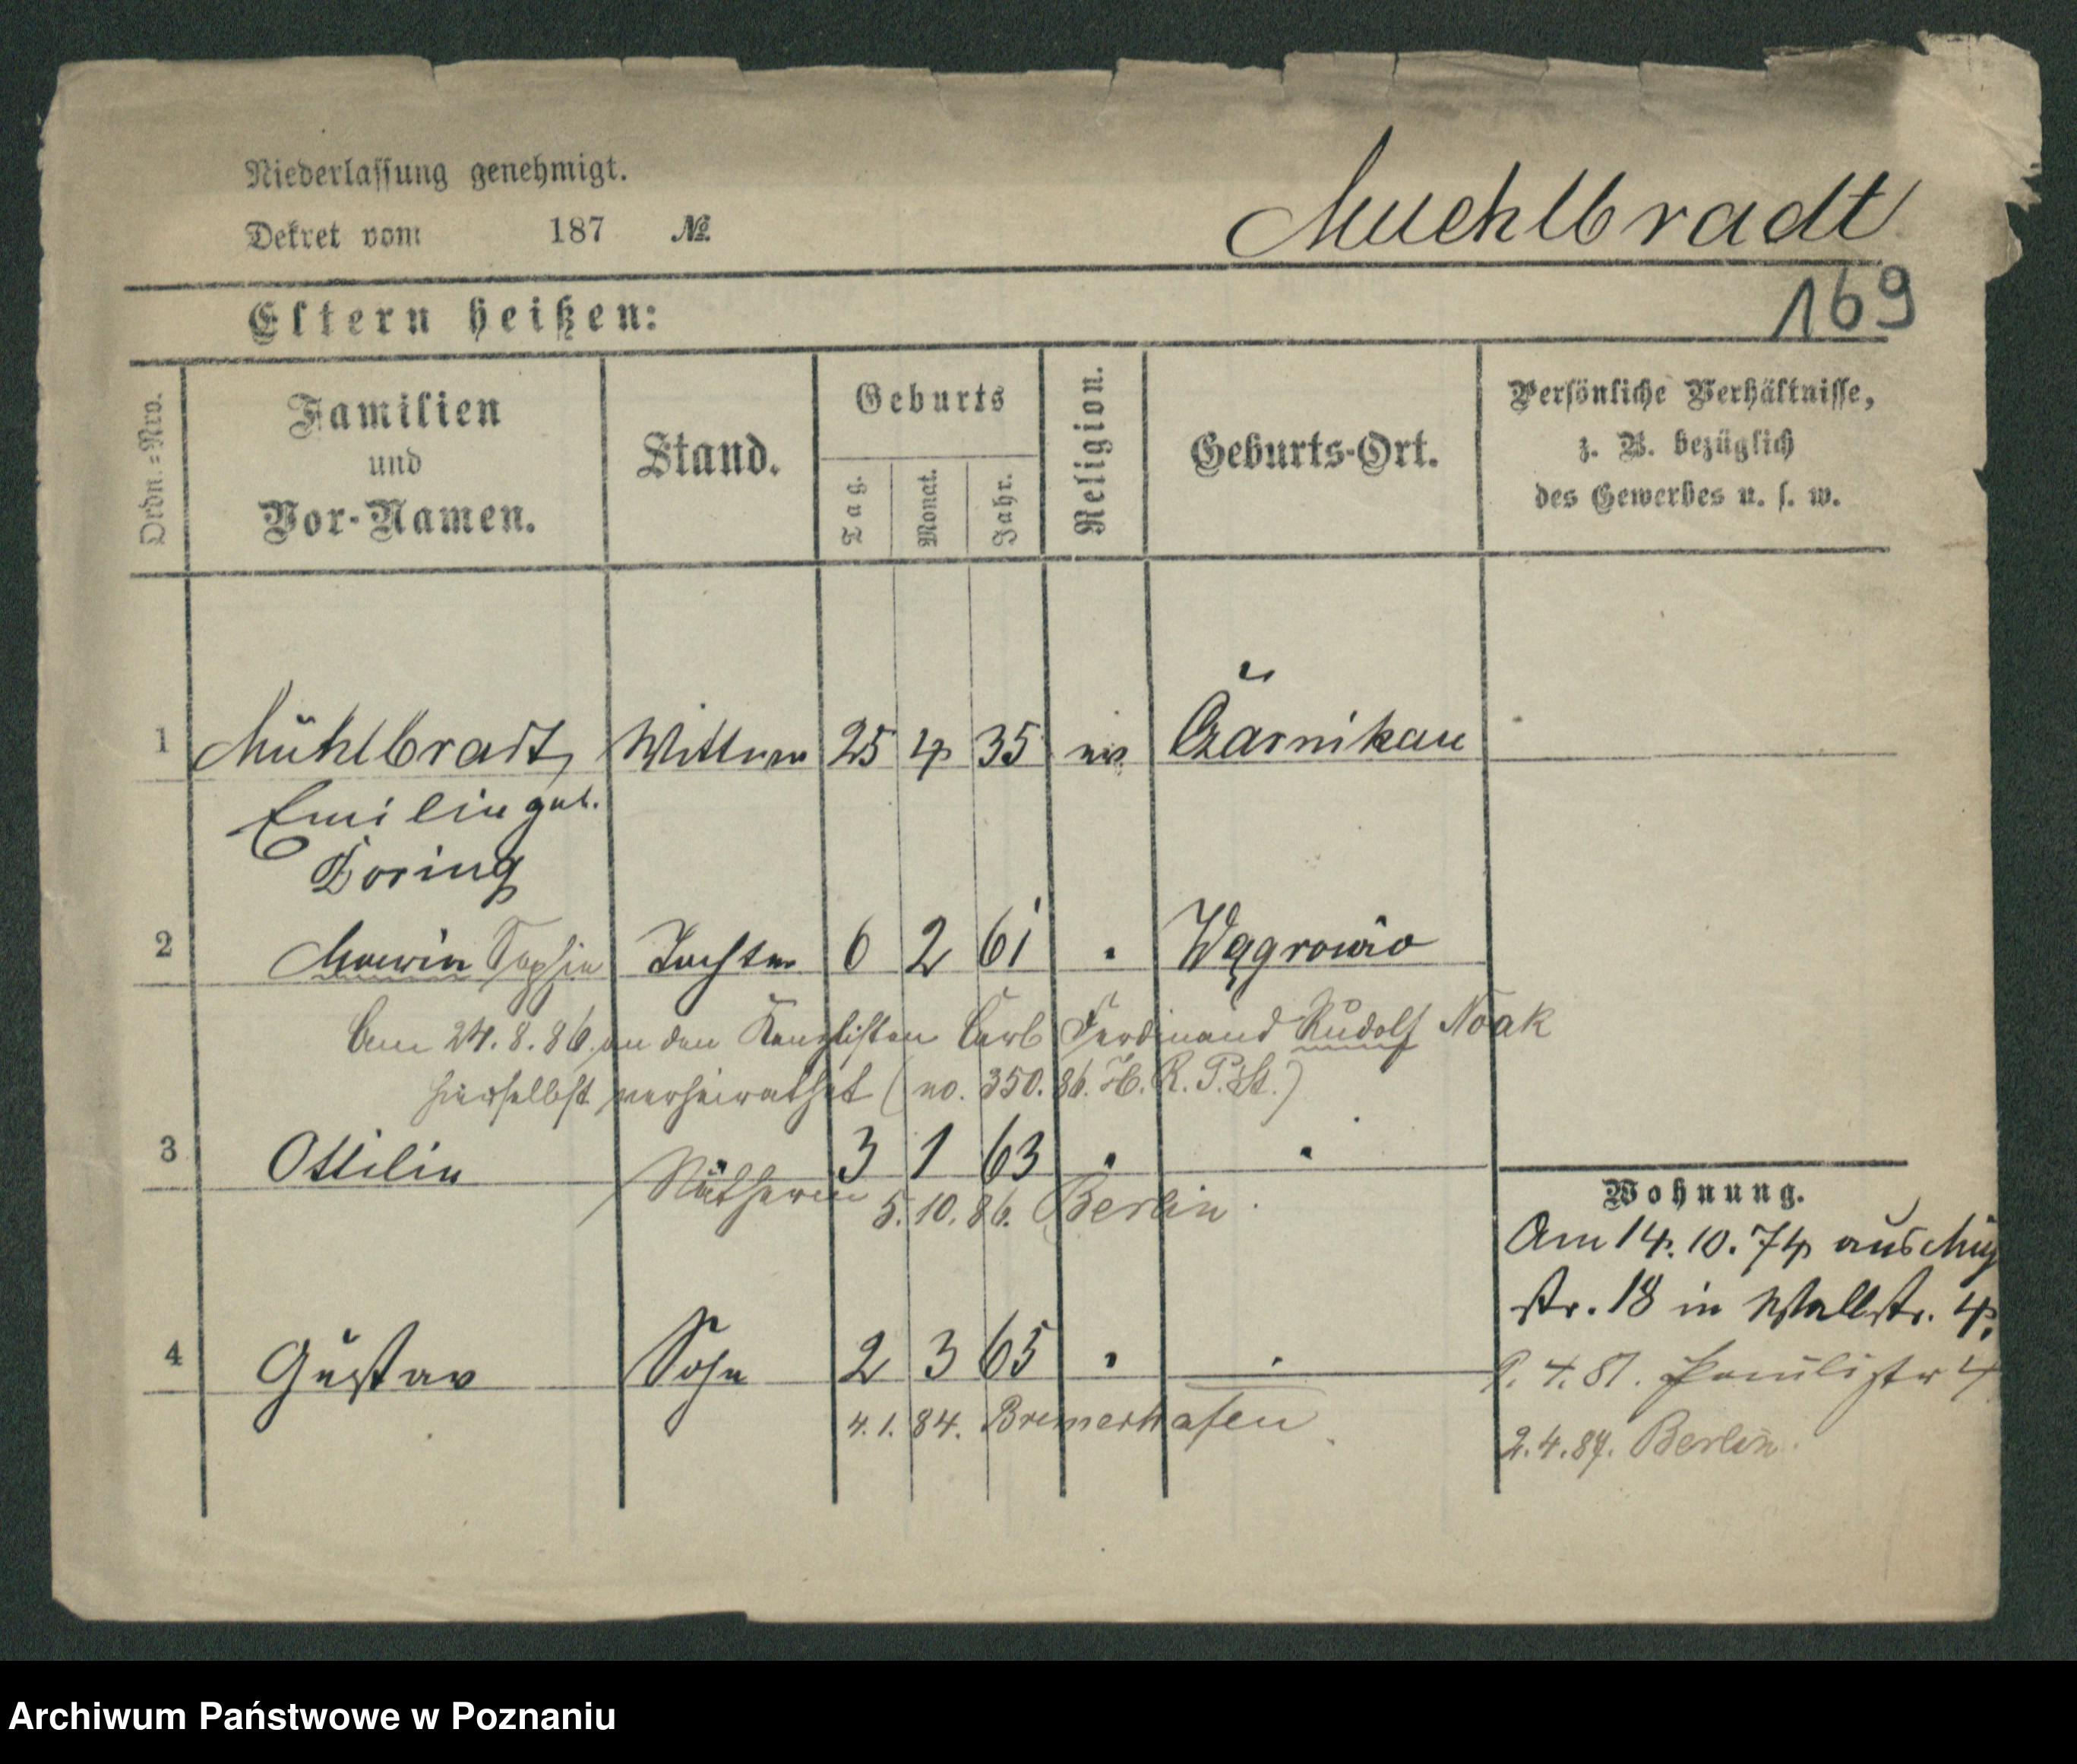 Niederlassung genehmigt.
Dekret vom 187 №
Muehlbradt
169
Eltern heißen:
Ordn.=Nro.
Familien
und
Vor-Namen.
Stand.
Geburts
Tag.
Monat.
Jahr.
Religion.
Geburts-Ort.
Persönliche Verhältnisse,
z. B. bezüglich
des Gewerbes u. s. w.
1 Mühlbradt, Wittwe 25 4 35 ev. Czarnikau
Emilie geb.
Doring
2 Marie Sophie Tochter 6 2 61 " Wągrowic
Am 24.8.86 an den Kanzlisten Carl Ferdinand Rudolf Noak
hierselbst verheirathet (no. 350. 86. H. R. P. St.)
3 Ottilie 3 1 63 " "
Nätherin 5.10.86. Berlin
4 Gustav Sohn 2 3 65 " "
4.1.84. Bremerhafen
Wohnung.
Am 14.10.74 aus
str. 18 in Wallstr. 4.
4.81. Paulistr 4
2.4.87. Berlin.
Archiwum Państwowe w Poznaniu